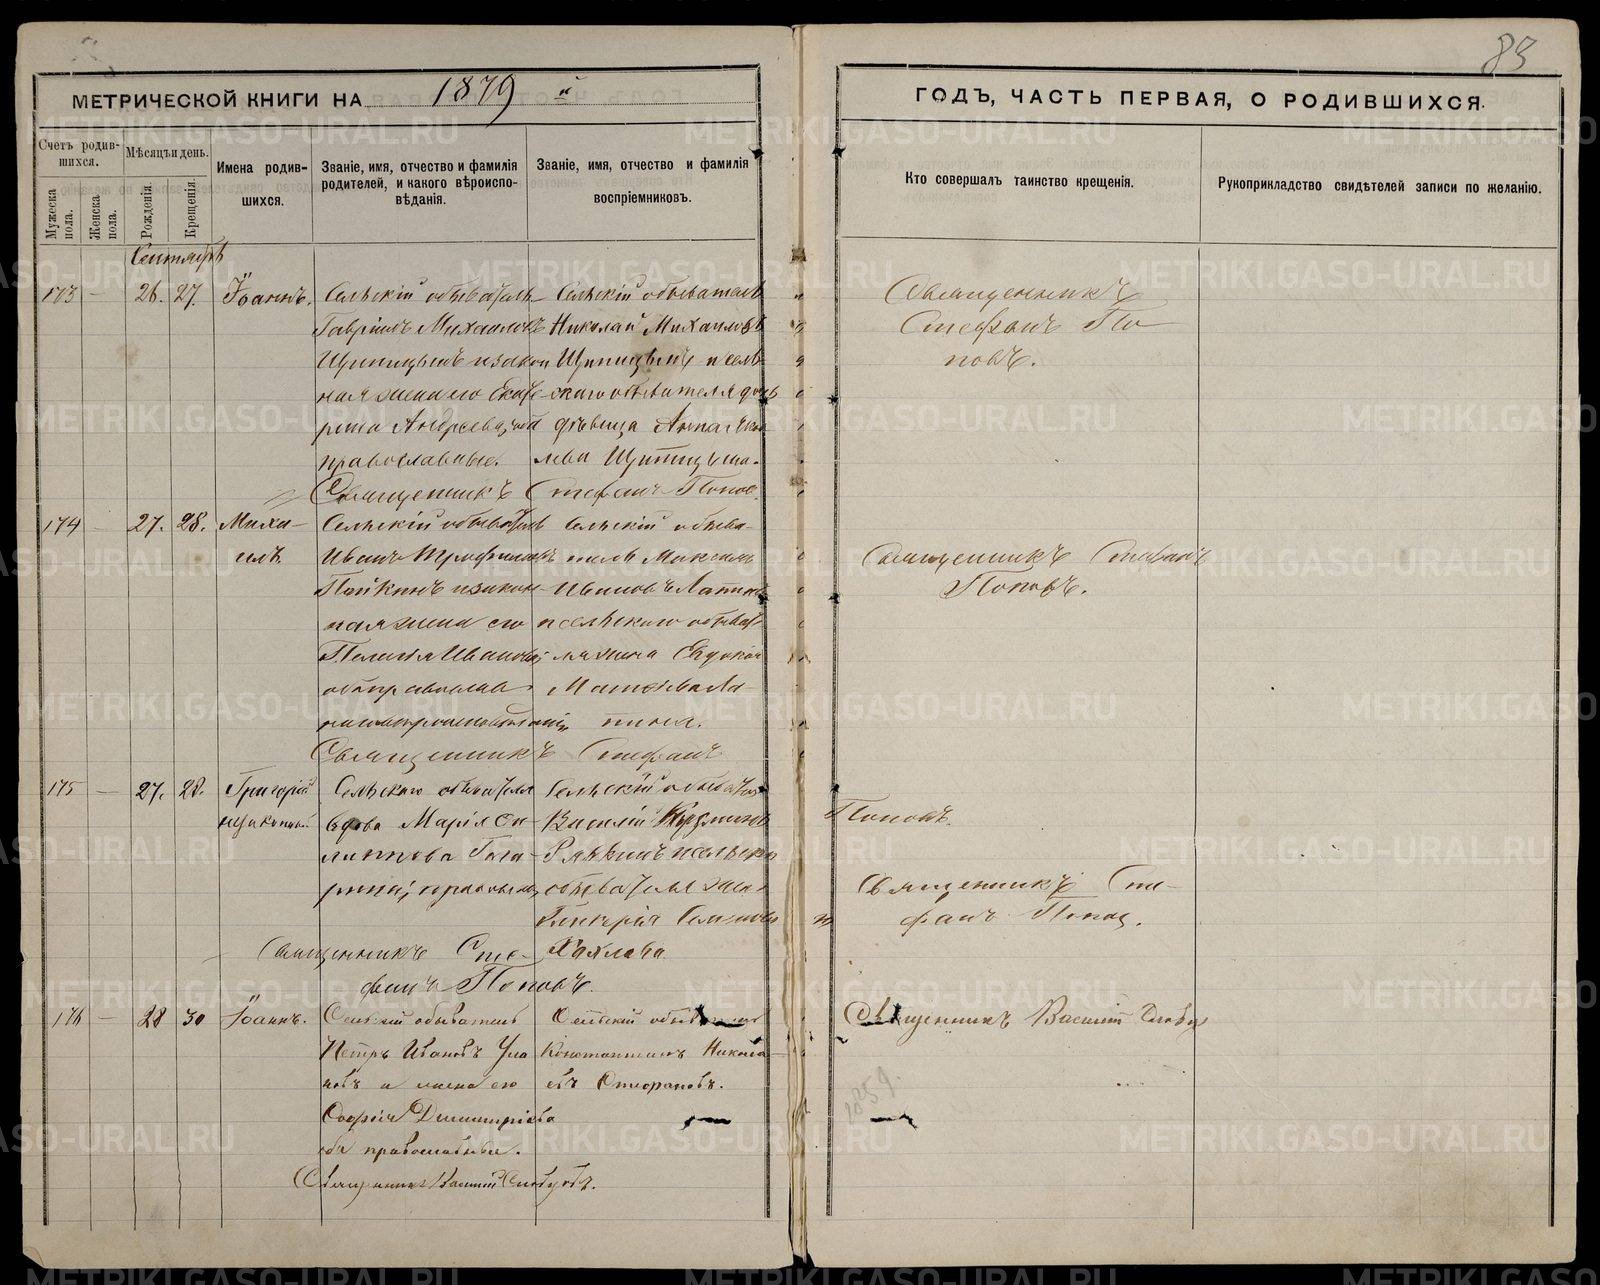 83
МЕТРИЧЕСКОЙ КНИГИ НА 1879 й
ГОДЪ, ЧАСТЬ ПЕРВАЯ, О РОДИВШИХСЯ.
Счетъ родив-
шихся.
Мужеска пола.
Женска пола.
Мѣсяцъ и день.
Рожденія.
Крещенія.
Имена родив-
шихся.
Званіе, имя, отчество и фамилія
родителей, и какого вѣроиспо-
вѣданія.
Званіе, имя, отчество и фамилія
воспріемниковъ.
Кто совершалъ таинство крещенія.
Рукоприкладство свидѣтелей записи по желанію.
Сентябрь
173 — 26. 27. Іоаннъ.
Сельскій обыватель
Гавріилъ Михаиловъ
Щипицынъ и закон
ная жена его Екате
рина Андреева, оба
православные.
Сельскій обыватель
Николай Михаиловъ
Щипицынъ и сель
скаго обывателя дочь
дѣвица Анна
лева Щипицына.
Священникъ
Стефанъ По
повъ.
Священникъ Стефанъ Попов
174 — 27. 28. Миха-
илъ.
Сельскій обыватель
Иванъ Трофимовъ
Пайкинъ и закон-
ная жена его
Пелагія Иванова,
оба православ
Сельскій обыва-
тель Максимъ
Ивановъ Лапинъ
и сельскаго обыват
ля жена Евдокія
Матѳѣева Ла-
пина.
Священникъ Стефанъ
Поповъ.
Священникъ Стефанъ
Поповъ.
175 — 27. 28. Григорій
незаконный
Сельскаго обывателя
вдова Марія Фи
липпова Гага-
рина, православ
Сельскій обыватель
Василій
Рявкинъ и сельска
обывателя жена
Гликерія Семенова
Хахлова
Священникъ Сте-
фанъ Попов.
Священникъ Сте-
фанъ Поповъ.
176 — 28 30 Іоаннъ.
Сельскій обыватель
Петръ Ивановъ Ула
новъ и жена его
Софія Димитріева
оба православные.
Сельскій обыватель
Константинъ Никола-
евъ Отографовъ.
Священникъ Василій Словцо
Священникъ Василій Словцовъ.
1859.
METRIKI.GASO-URAL.RU